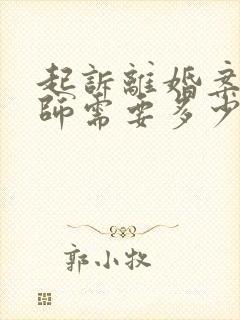 起訴離婚案
師需要多少
郭小牧